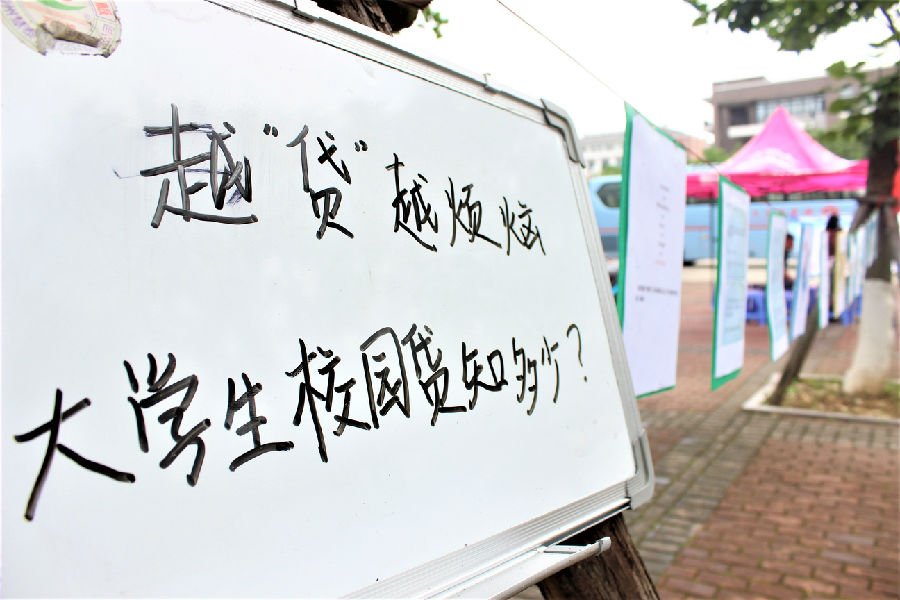 越“贷”越烦恼
大学生校园贷知多少?